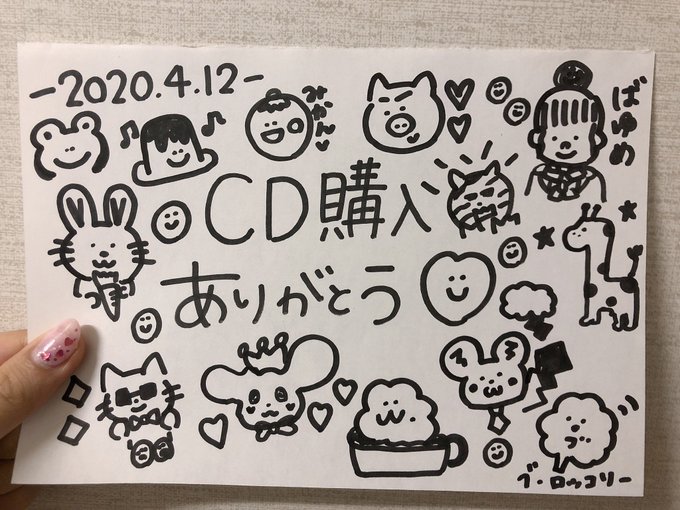 -2020.4.12-
みかん
ばゆめ
CD購入
ありがとう
ブ・ロッコリー